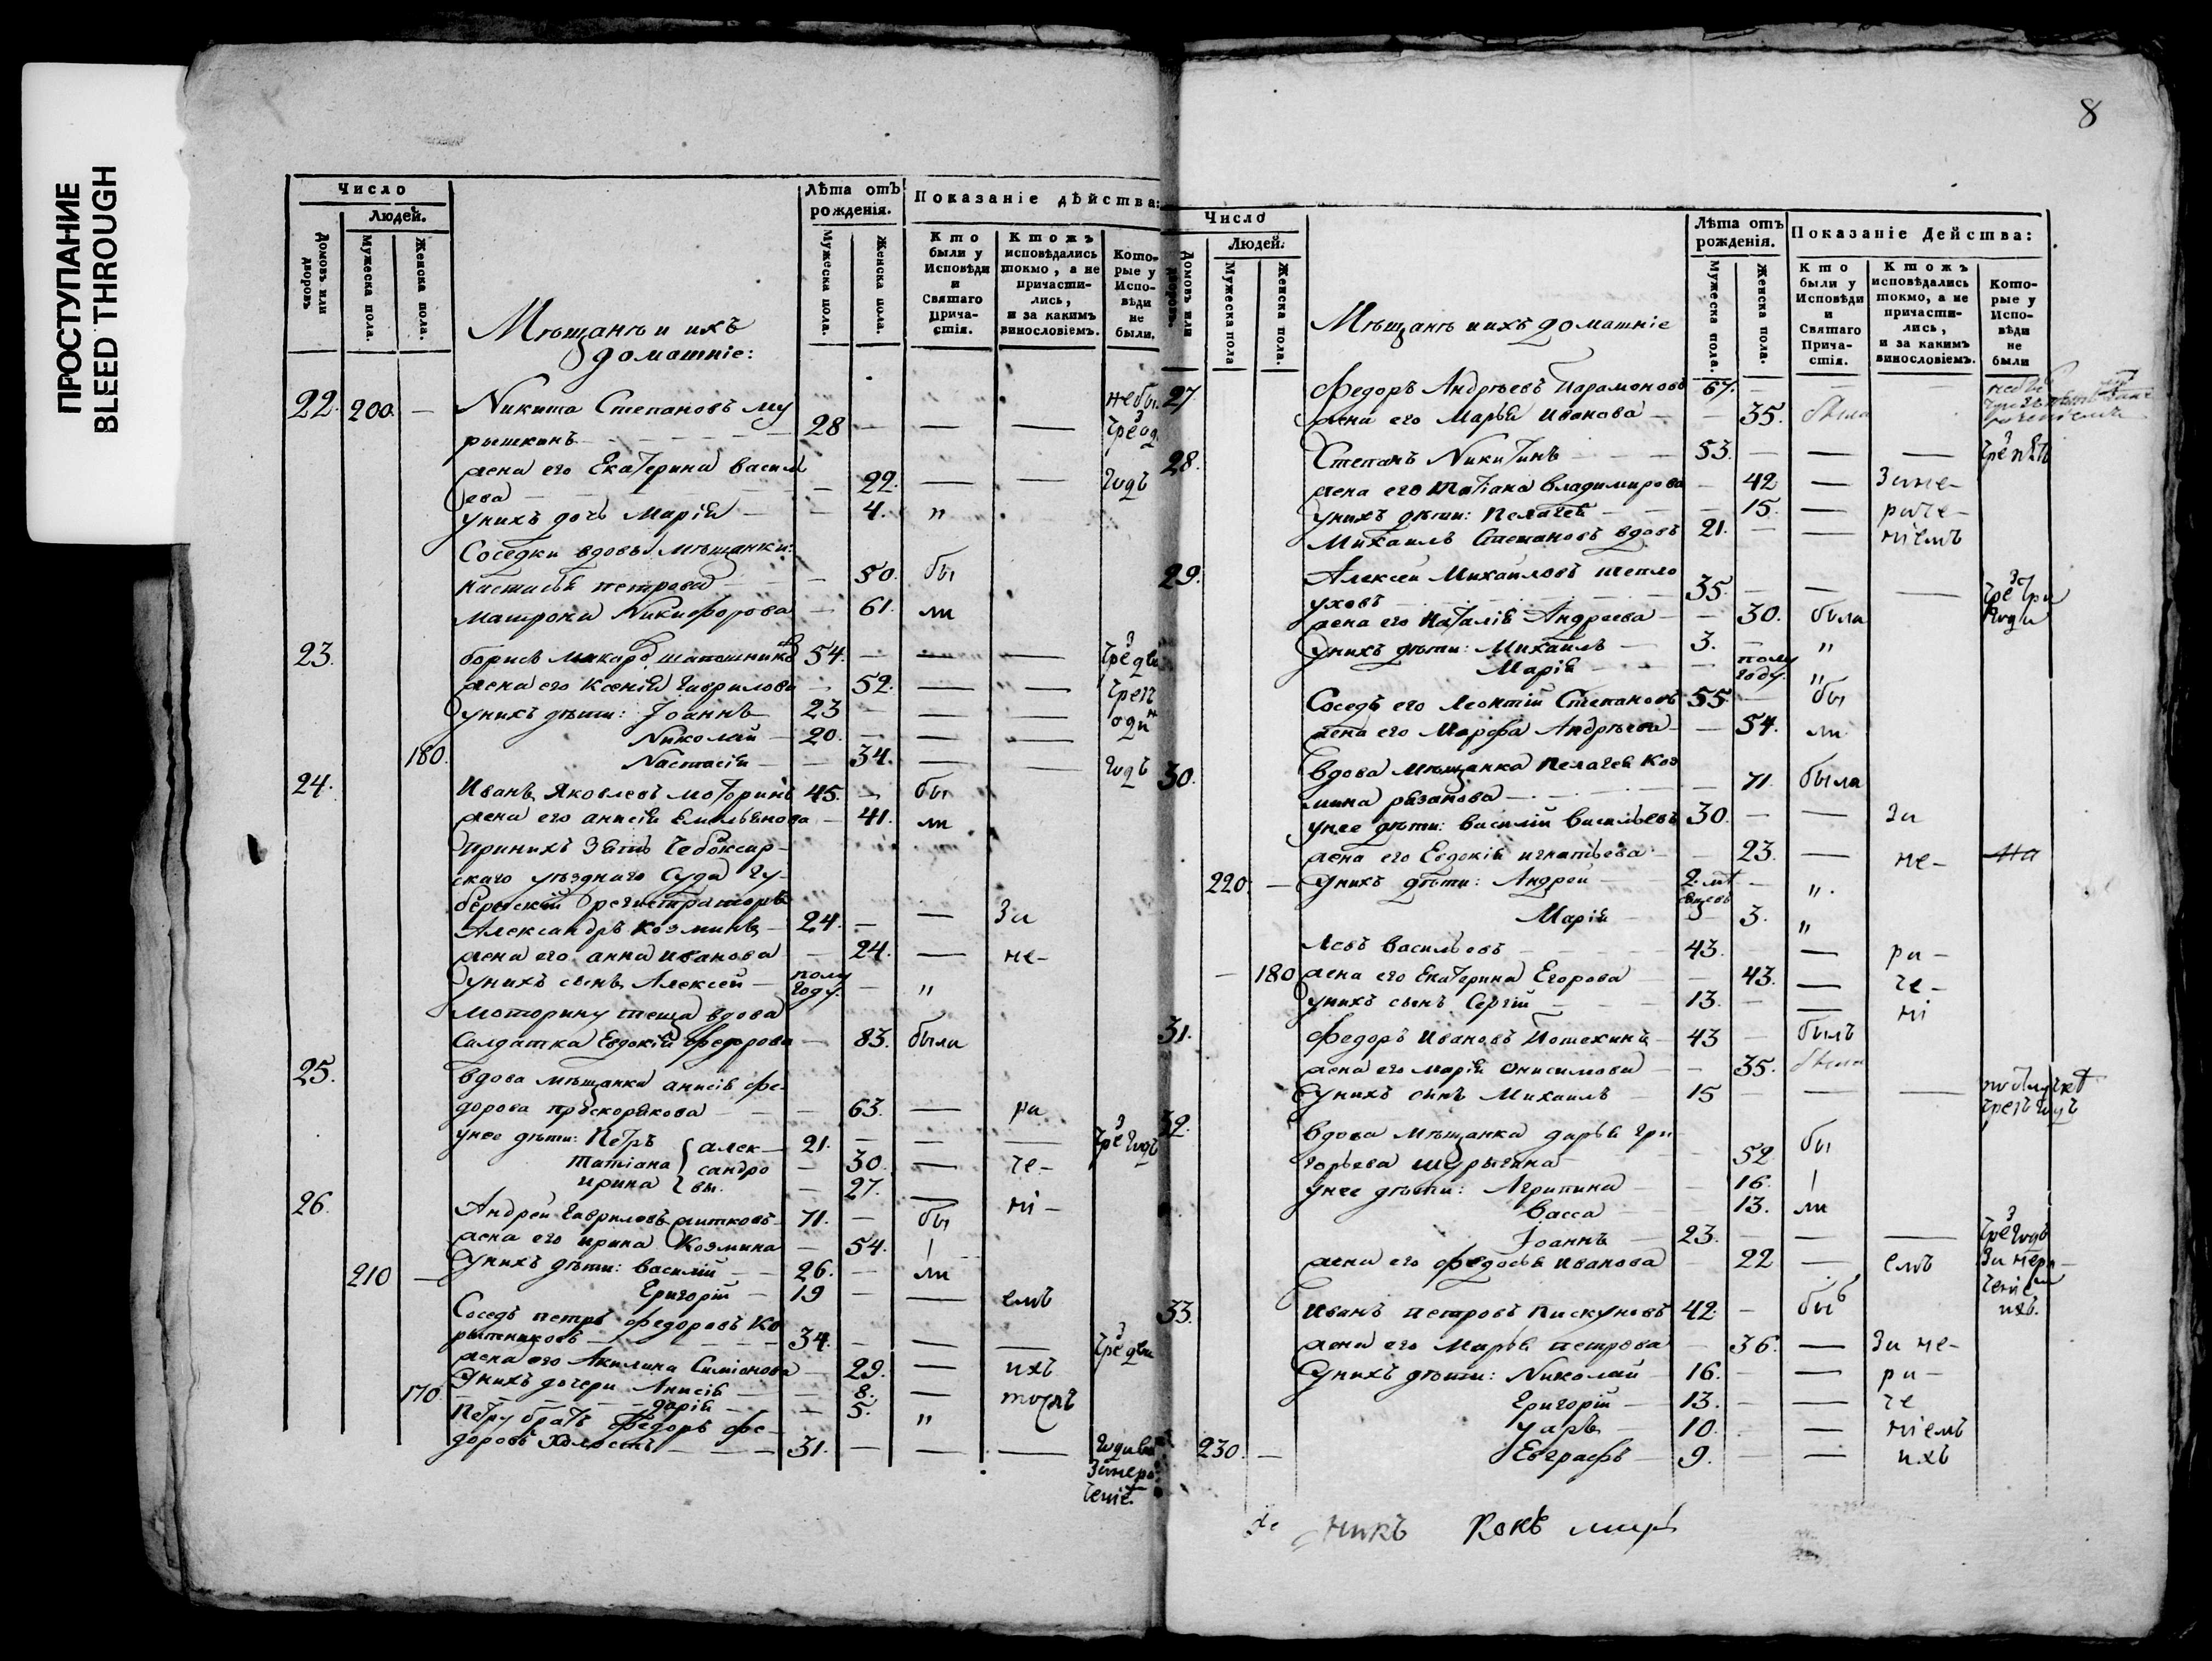 ПРОСТУПАНИЕ
BLEED THROUGH
Число
Людей.
Домовъ или дворовъ
Мужеска пола.
Женска пола.
Мѣщанъ и ихъ
домашніе:
Лѣта отъ рожденія.
Мужеска пола.
Женска пола.
Показаніе дѣйства:
Кто были у Исповѣди и Святаго Прича-стія.
Ктожъ исповѣдались токмо, а не причасти-лись, и за какимъ винословіемъ.
Кото-рые у Испо-вѣди не были.
22. 200. — Никита Степановъ му небы
рышкинъ — 28 — — —
жена его Екатерина васил
ева — — 22. — — годъ
у нихъ дочь Марія — — 4. "
Соседки вдовы мѣщанки:
настасья петрова — 50. бы
матрона Никифорова — 61. ли
23. борисъ макаро шапошнико 54. — — —
жена его ксенія гаврилова — 52. — —
у нихъ дѣти: Іоаннъ 23 — — — оди
Николай — 20. — — —
180. Настасія — — 34. — — годъ
24. Иванъ Яковлевъ моторинъ 45. — бы
жена его анисія Емельянова — 41. ли
при нихъ Зять Чебоксар-
скаго уѣзднаго Суда гу-
бернскій регистраторъ
Александръ козминъ — 24. — — За
жена его анна иванова — 24. — не-
у нихъ сынъ Алексей — полу году. — "
моторину теща вдова
Салдатка Евдокія федорова — 83. была
25. вдова мѣщанка анисія фе-
дорова пряскорякова — — 63. — ра
у нее дѣти: Петръ алек- 21. — — — чре годъ
татіана сандро — 30. — че-
ирина вы. — 27. — ні-
26. Андрей гавриловъ житковъ 71. — бы
жена его ирина Козмина — 54.
210 — у нихъ дѣти: василій — 26. — ли
Григорій — 19 — — емъ
Соседъ петръ федоровъ ко
рытниковъ — 34. — — —
жена его Акилина Симіонова — 29. — ихъ
у нихъ дочери Анисія — — 8. —
170. дарія — — 5. "
Петру братъ федоръ фе-
доровъ холостъ — 31. — — —
8
Число
Людей.
Домовъ или дворовъ.
Мужеска пола
Женска пола.
Мѣщанъ и ихъ домашніе
Лѣта отъ рожденія.
Мужеска пола.
Женска пола.
Показаніе Действа:
Кто были у Исповѣди и Святаго Прича-стія.
Ктожъ исповѣдались токмо, а не причасти-лись, и за какимъ винословіемъ.
Кото-рые у Испо-вѣди не были
27. Федоръ Андреевъ Парамоновъ 67. — — —
жена его Марья иванова — — 35. была
28. Степанъ Никитинъ — 53. — — —
жена его татіана владимирова — 42 — Зане-
у нихъ дѣти: Пелагея — — 15. — раче-
Михаилъ Степановъ вдовъ 21. — — ніемъ
29. Алексей Михайловъ тепло
уховъ — 35. — — — чре три
жена его Наталія Андреева — — 30. была годи
у нихъ дѣти: Михаилъ — 3. — "
Марія — — полу году. "
Соседъ его Леонтій Степановъ 55 — бы
жена его Марфа Андреева — — 54. ли
30. вдова мѣщанка Пелагея Коз
мина рязанова — — 71 была
у нее дѣти: василій васильевъ 30. — — За
жена его Евдокія игнатьева — — 23. — не-
220. — у нихъ дѣти: Андрей — 2. — "
Марія — 3. "
Левъ васильевъ — 43. — — ра-
— 180 жена его Екатерина Егорова — — 43. — че-
у нихъ сынъ Сергій — 13. — — ні
31. Федоръ ивановъ Потехинъ — 43 — былъ
жена его марія онисимова — — 35. была
у нихъ сынъ Михаилъ — 15 — — —
32. вдова мѣщанка дарья гри
горьева шурыгина — 52 бы
у нее дѣти: Агрипина — — 16.
васса — — 13. ли
Іоаннъ — 23. — — — чре годъ
жена его федосья иванова — 22 — емъ
33. иванъ петровъ пискуновъ 42. — бы
жена его Марья петрова — 36. — За не-
у нихъ дѣти: Николай — 16. — — ра-
Григорій — 13. — — че
уаръ — 10. — — ніемъ
230. — Евграфъ — 9. — — ихъ